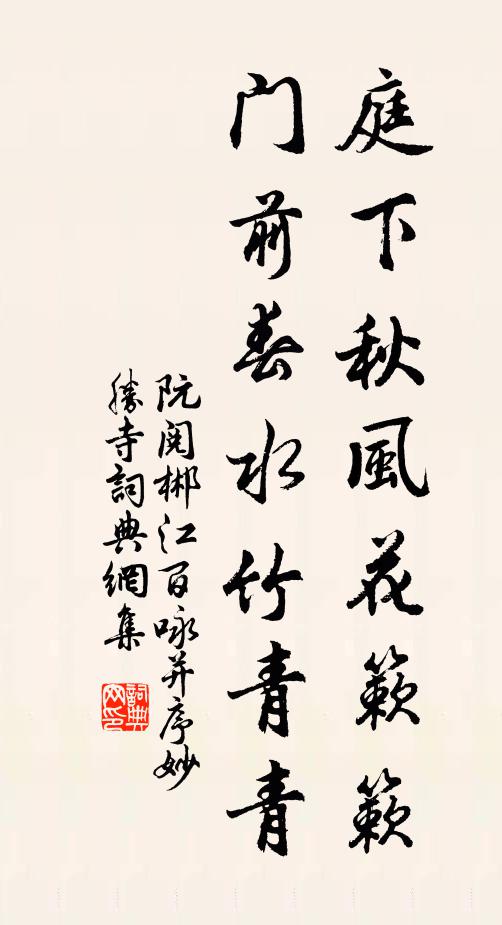 庭下秋風花簌簌
门前春水竹青青
阮閱郴江百咏并序妙
勝寺詞典網集
詞典网印